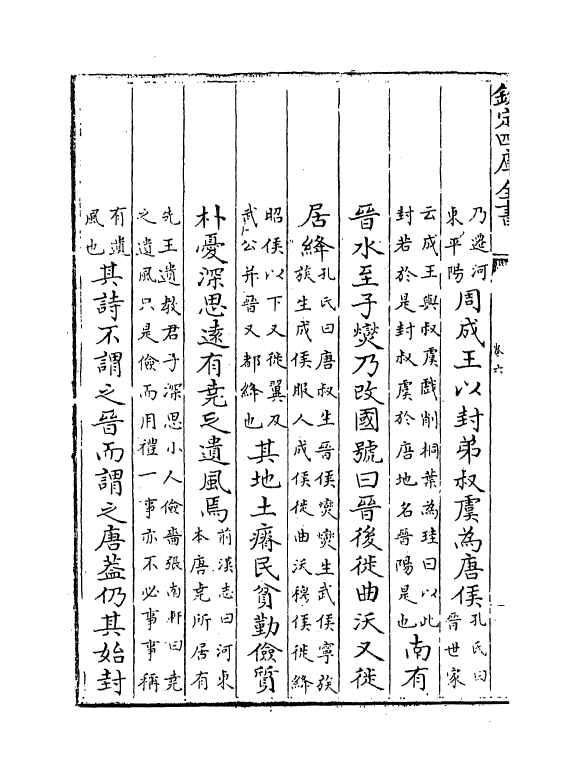 欽定四庫全書
卷六
乃遷河
東平陽
周成王以封弟叔虞為唐侯
孔氏曰
晉世家
云成王與叔虞戲削桐葉為珪曰以此
封若於是封叔虞於唐地名晉陽是也
南有
晉水至子燮乃改國號曰晉後徙曲沃又徙
居絳
孔氏曰唐叔生晉侯燮燮生武侯寧族
族生成侯服人成侯徙曲沃穆侯徙絳
昭侯以下又徙翼及
武公并晉又都絳也
其地土瘠民貧勤儉質
朴憂深思遠有堯之遺風焉
前漢志曰河東
本唐堯所居有
先王遺教君子深思小人儉嗇張南軒曰堯
之遺風只是儉而用禮一事亦不必事事稱
有遺
風也
其詩不謂之晉而謂之唐蓋仍其始封